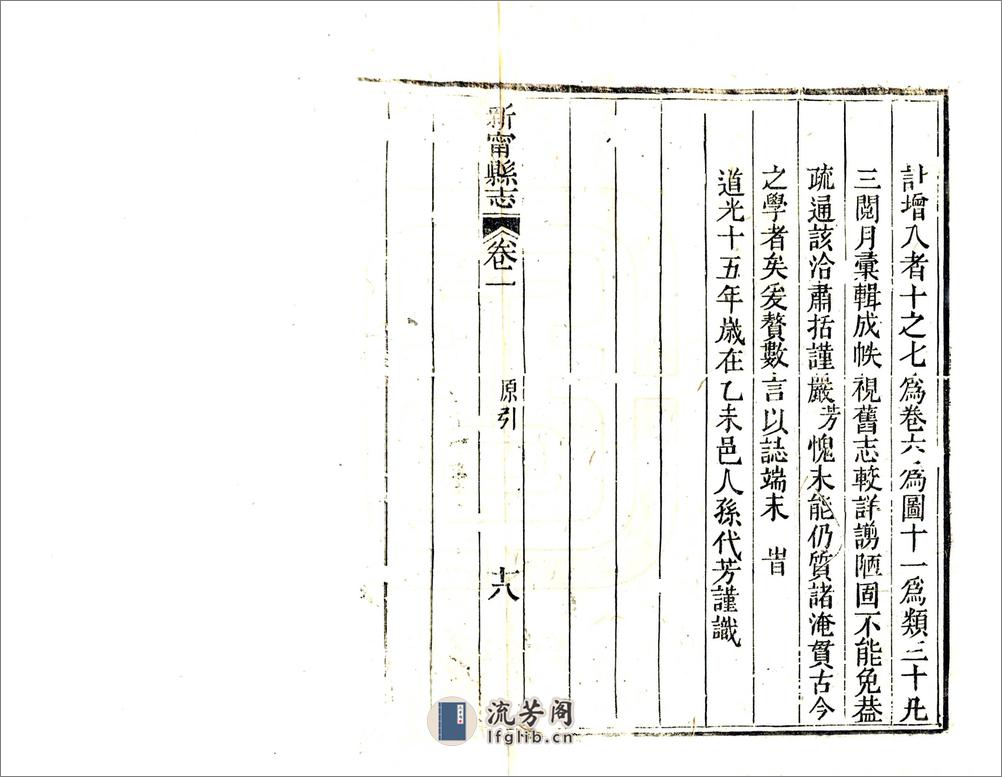 計增入者十之七爲卷六爲圖十一爲類三十凡
三閱月彙輯成帙視舊志較詳謭陋固不能免葢
疏通該洽肅括謹嚴芳愧未能仍質諸淹貫古今
之學者矣爰贅數言以誌端末 旹
道光十五年歲在乙未邑人孫代芳謹識
新甯縣志 卷一 原引 十八
流芳阁
lfglib.cn